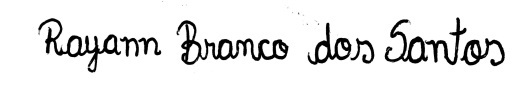 Rayann Branco dos Santos